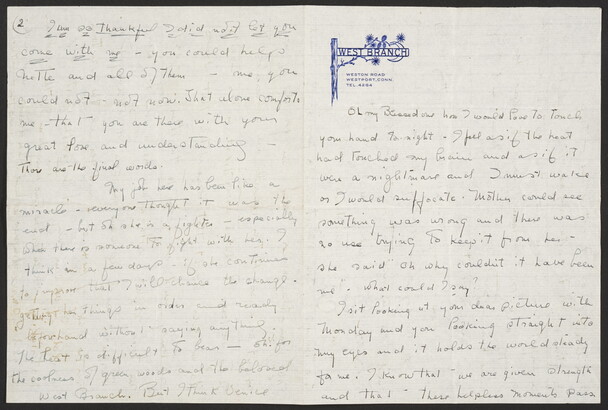 2
I am so thankful I did not let you
come with me - you could help
Mother and all of them - me, you
could not - not now. That alone comforts
me - that you are there with your
great love and understanding -
Those are the final words.
My job here has been like a
miracle - everyone thought it was the
end - but oh she is a fighter - especially
when there is someone to fight with her. I
think in a few days - if she continues
to improve that I will chance the change.
getting her things in order and ready
beforehand without saying anything
The heat so difficult to bear - oh! for
the coolness of green woods and the beloved
West Branch. But I think
WEST BRANCH
WESTON ROAD
WESTPORT, CONN.
TEL. 4264
Oh my Blessed one how I would love to touch
your hand to-night - I feel as if the heat
had touched my brain and as if it
were a nightmare and I must wake
or I would suffocate. Mother could see
something was wrong and there was
no use trying to keep it from her -
she said "Oh why couldn't it have been
me" - what could I say?
I sit looking at your dear picture with
Monday and you looking straight into
my eyes and it holds the world steady
for me. I know that we are given strength
and that these helpless moments pass.